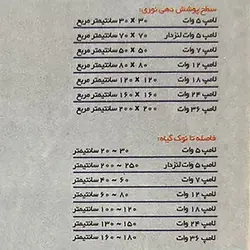 سطح پوشش دهی نوری:
لامپ ۵ وات ۳۰ X ۳۰ سانتیمتر مربع
لامپ ۵ وات لنزدار ۷۰ X ۷۰ سانتیمتر مربع
لامپ ۷ وات ۵۰ X ۵۰ سانتیمتر مربع
لامپ ۱۲ وات ۸۰ X ۸۰ سانتیمتر مربع
لامپ ۱۸ وات ۱۲۰ X ۱۲۰ سانتیمتر مربع
لامپ ۲۴ وات ۱۶۰ X ۱۶۰ سانتیمتر مربع
لامپ ۳۶ وات ۲۰۰ X ۲۰۰ سانتیمتر مربع
فاصله تا نوک گیاه:
لامپ ۵ وات ۳۰ ~ ۲۰ سانتیمتر
لامپ ۵ وات لنزدار ۲۵۰ ~ ۲۰۰ سانتیمتر
لامپ ۷ وات ۶۰ ~ ۴۰ سانتیمتر
لامپ ۱۲ وات ۸۰ ~ ۶۰ سانتیمتر
لامپ ۱۸ وات ۱۲۰ ~ ۱۰۰ سانتیمتر
لامپ ۲۴ وات ۱۵۰ ~ ۱۳۰ سانتیمتر
لامپ ۳۶ وات ۱۸۰ ~ ۱۶۰ سانتیمتر